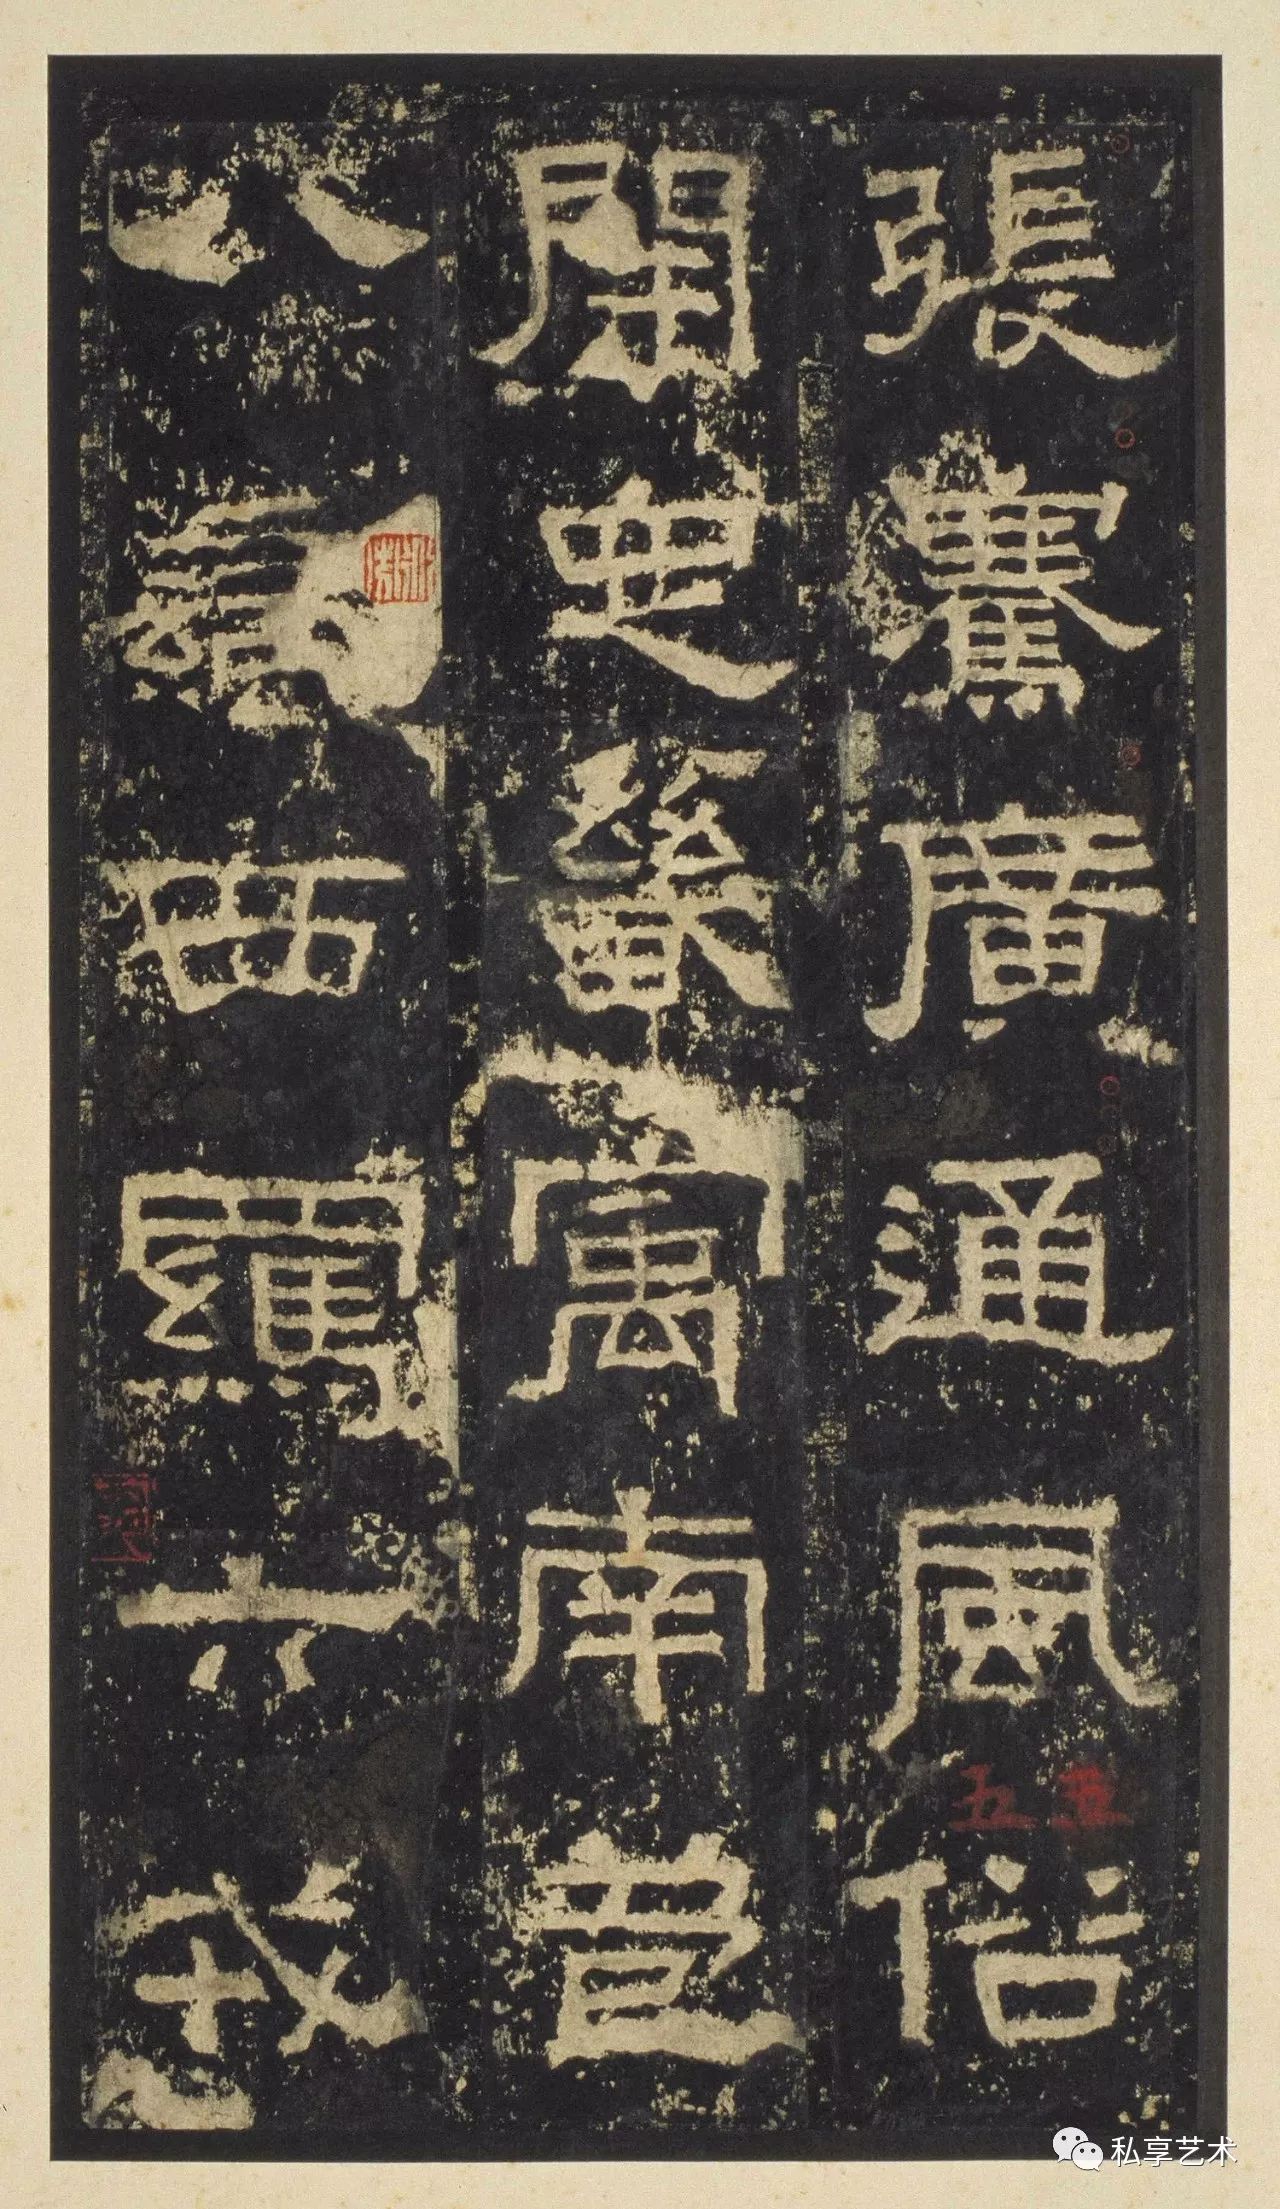 張騫廣通風俗
開定畿寓南苞
八蠻西羈六戎
五五
私享艺术